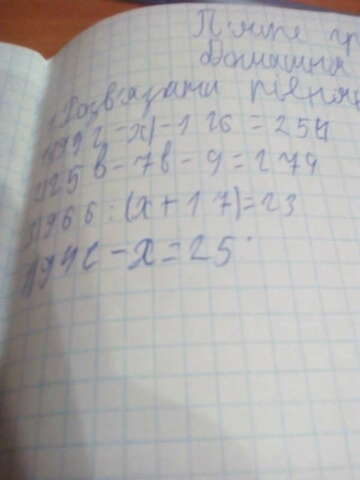 П'яте
Домашня
Розв'язати рівня
1)(992-x)-126=254
2)25в-7в-9=279
3)966:(x+17)=23
4)942-x=25